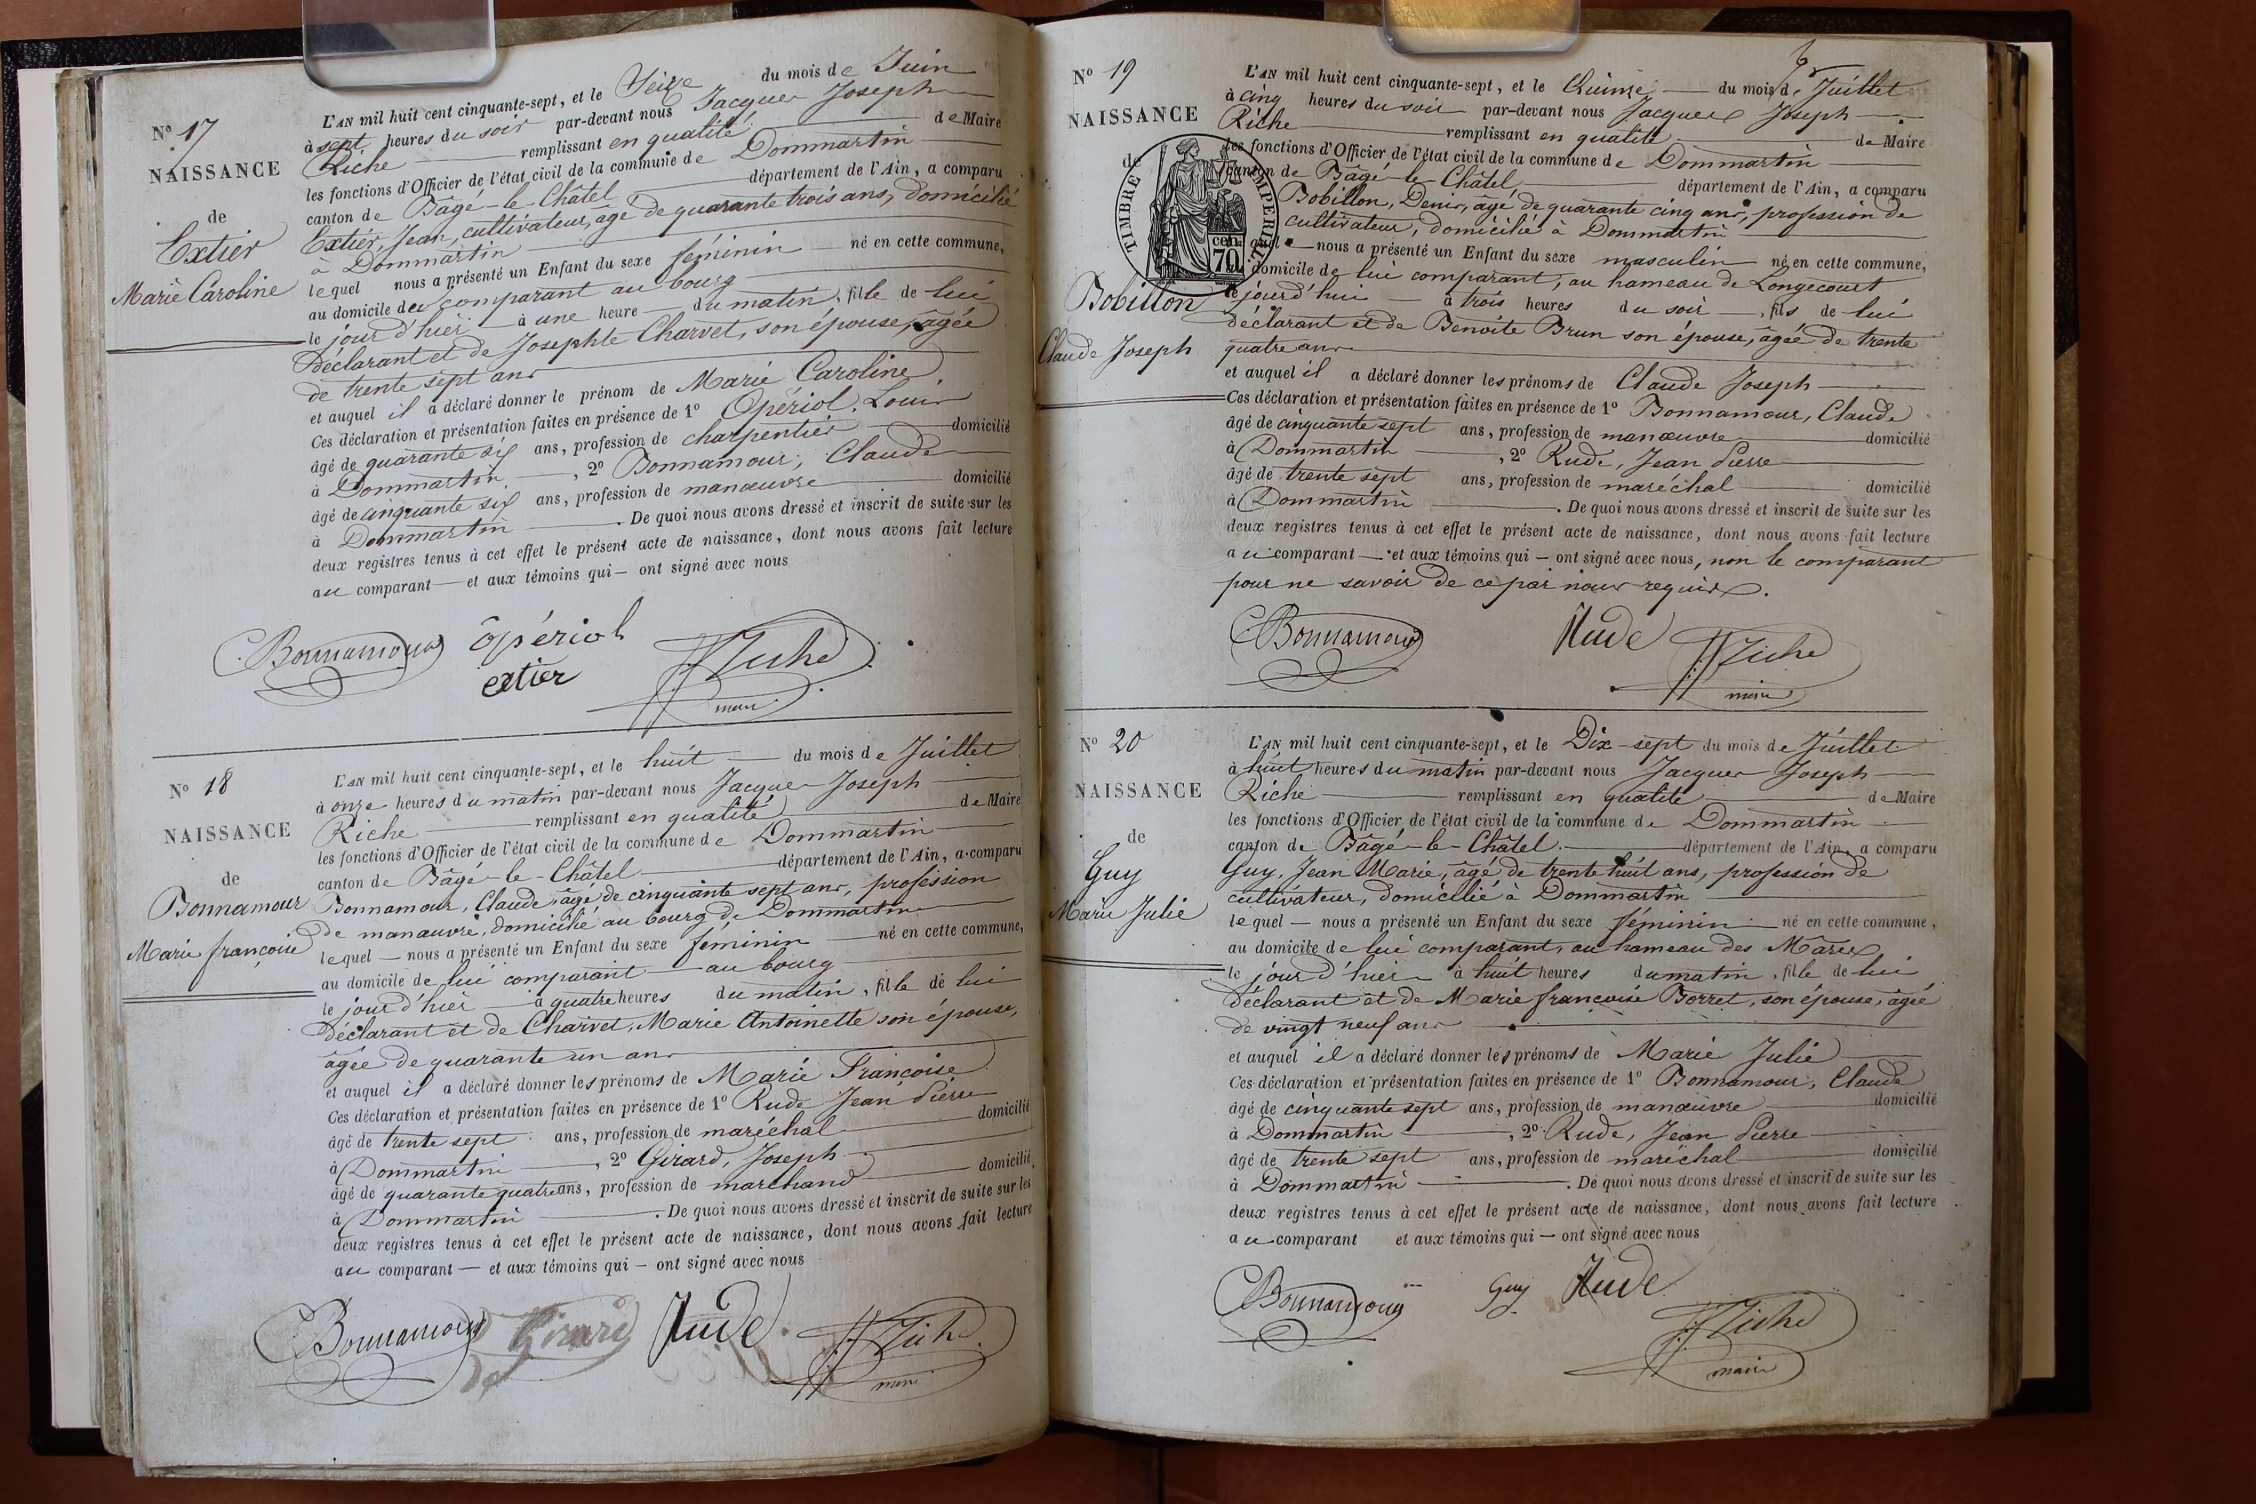 No 17
NAISSANCE
de
Extier
Marie Caroline
L'AN mil huit cent cinquante-sept, et le Seize du mois de Juin
à sept heures du soir par-devant nous Jacques Joseph
Riche remplissant en qualité de Maire
les fonctions d'Officier de l'état civil de la commune de Dommartin
canton de Bâgé-le-Châtel département de l'Ain, a comparu
Extier, Jean, cultivateur, agé de quarante trois ans, domicilié
à Dommartin
lequel nous a présenté un Enfant du sexe féminin né en cette commune,
au domicile du comparant au bourg
le jour d'hier à une heure du matin, fille de lui
déclarant et de Josephte Charvet, son épouse, âgée
de trente sept ans
et auquel il a déclaré donner le prénom de Marie Caroline
Ces déclaration et présentation faites en présence de 1o Opériol, Louis
âgé de quarante six ans, profession de charpentier domicilié
à Dommartin, 2o Bonnamour, Claude
âgé de cinquante six ans, profession de manœuvre domicilié
à Dommartin. De quoi nous avons dressé et inscrit de suite sur les
deux registres tenus à cet effet le présent acte de naissance, dont nous avons fait lecture
au comparant — et aux témoins qui — ont signé avec nous
C. Bonnamour opériol
extier JJ Riche
maire
No 18
NAISSANCE
de
Bonnamour
Marie françoise
L'AN mil huit cent cinquante-sept, et le huit du mois de Juillet
à onze heures du matin par-devant nous Jacques Joseph
Riche remplissant en qualité de Maire
les fonctions d'Officier de l'état civil de la commune de Dommartin
canton de Bâgé-le-Châtel département de l'Ain, a comparu
Bonnamour, Claude, âgé de cinquante sept ans, profession
de manœuvre, domicilié au bourg de Dommartin
lequel — nous a présenté un Enfant du sexe féminin né en cette commune,
au domicile de lui comparant au bourg
le jour d'hier à quatre heures du matin, fille de lui
déclarant et de Charvet, Marie Antoinette son épouse,
âgée de quarante un ans
et auquel il a déclaré donner les prénoms de Marie Françoise
Ces déclaration et présentation faites en présence de 1o Rude Jean Pierre
âgé de trente sept ans, profession de maréchal domicilié
à Dommartin, 2o Girard, Joseph
âgé de quarante quatre ans, profession de marchand domicilié
à Dommartin. De quoi nous avons dressé et inscrit de suite sur les
deux registres tenus à cet effet le présent acte de naissance, dont nous avons fait lecture
au comparant — et aux témoins qui — ont signé avec nous
C. Bonnamour Girard Rude JJ Riche
maire
No 19
NAISSANCE
de
Bobillon
Claude Joseph
TIMBRE IMPERIAL
cen. 70
L'AN mil huit cent cinquante-sept, et le Quinze du mois de Juillet
à cinq heures du soir par-devant nous Jacques Joseph
Riche remplissant en qualité de Maire
les fonctions d'Officier de l'état civil de la commune de Dommartin
canton de Bâgé-le-Châtel département de l'Ain, a comparu
Bobillon, Denis, âgé de quarante cinq ans, profession de
cultivateur, domicilié à Dommartin
quel — nous a présenté un Enfant du sexe masculin né en cette commune,
domicile de lui comparant, au hameau de Longecourt
le jourd'hui — à trois heures du soir, fils de lui
déclarant et de Benoite Brun son épouse, âgée de trente
quatre ans
et auquel il a déclaré donner les prénoms de Claude Joseph
Ces déclaration et présentation faites en présence de 1o Bonnamour, Claude
âgé de cinquante sept ans, profession de manœuvre domicilié
à Dommartin, 2o Rude, Jean Pierre
âgé de trente sept ans, profession de maréchal domicilié
à Dommartin. De quoi nous avons dressé et inscrit de suite sur les
deux registres tenus à cet effet le présent acte de naissance, dont nous avons fait lecture
au comparant — et aux témoins qui — ont signé avec nous, non le comparant
pour ne savoir de ce par nous requis.
C. Bonnamour Rude JJ Riche
maire
No 20
NAISSANCE
de
Guy
Marie Julie
L'AN mil huit cent cinquante-sept, et le Dix-sept du mois de Juillet
à huit heures du matin par-devant nous Jacques Joseph
Riche remplissant en qualité de Maire
les fonctions d'Officier de l'état civil de la commune de Dommartin
canton de Bâgé-le-Châtel département de l'Ain, a comparu
Guy, Jean Marie, âgé de trente huit ans, profession de
cultivateur, domicilié à Dommartin
lequel — nous a présenté un Enfant du sexe féminin né en cette commune,
au domicile de lui comparant, au hameau des Mâries
le jour d'hier à huit heures du matin, fille de lui
déclarant et de Marie françoise Borret, son épouse, âgée
de vingt neuf ans
et auquel il a déclaré donner les prénoms de Marie Julie
Ces déclaration et présentation faites en présence de 1o Bonnamour, Claude
âgé de cinquante sept ans, profession de manœuvre domicilié
à Dommartin, 2o Rude, Jean Pierre
âgé de trente sept ans, profession de maréchal domicilié
à Dommartin. De quoi nous avons dressé et inscrit de suite sur les
deux registres tenus à cet effet le présent acte de naissance, dont nous avons fait lecture
au comparant et aux témoins qui — ont signé avec nous
C. Bonnamour Guy Rude
JJ Riche
maire